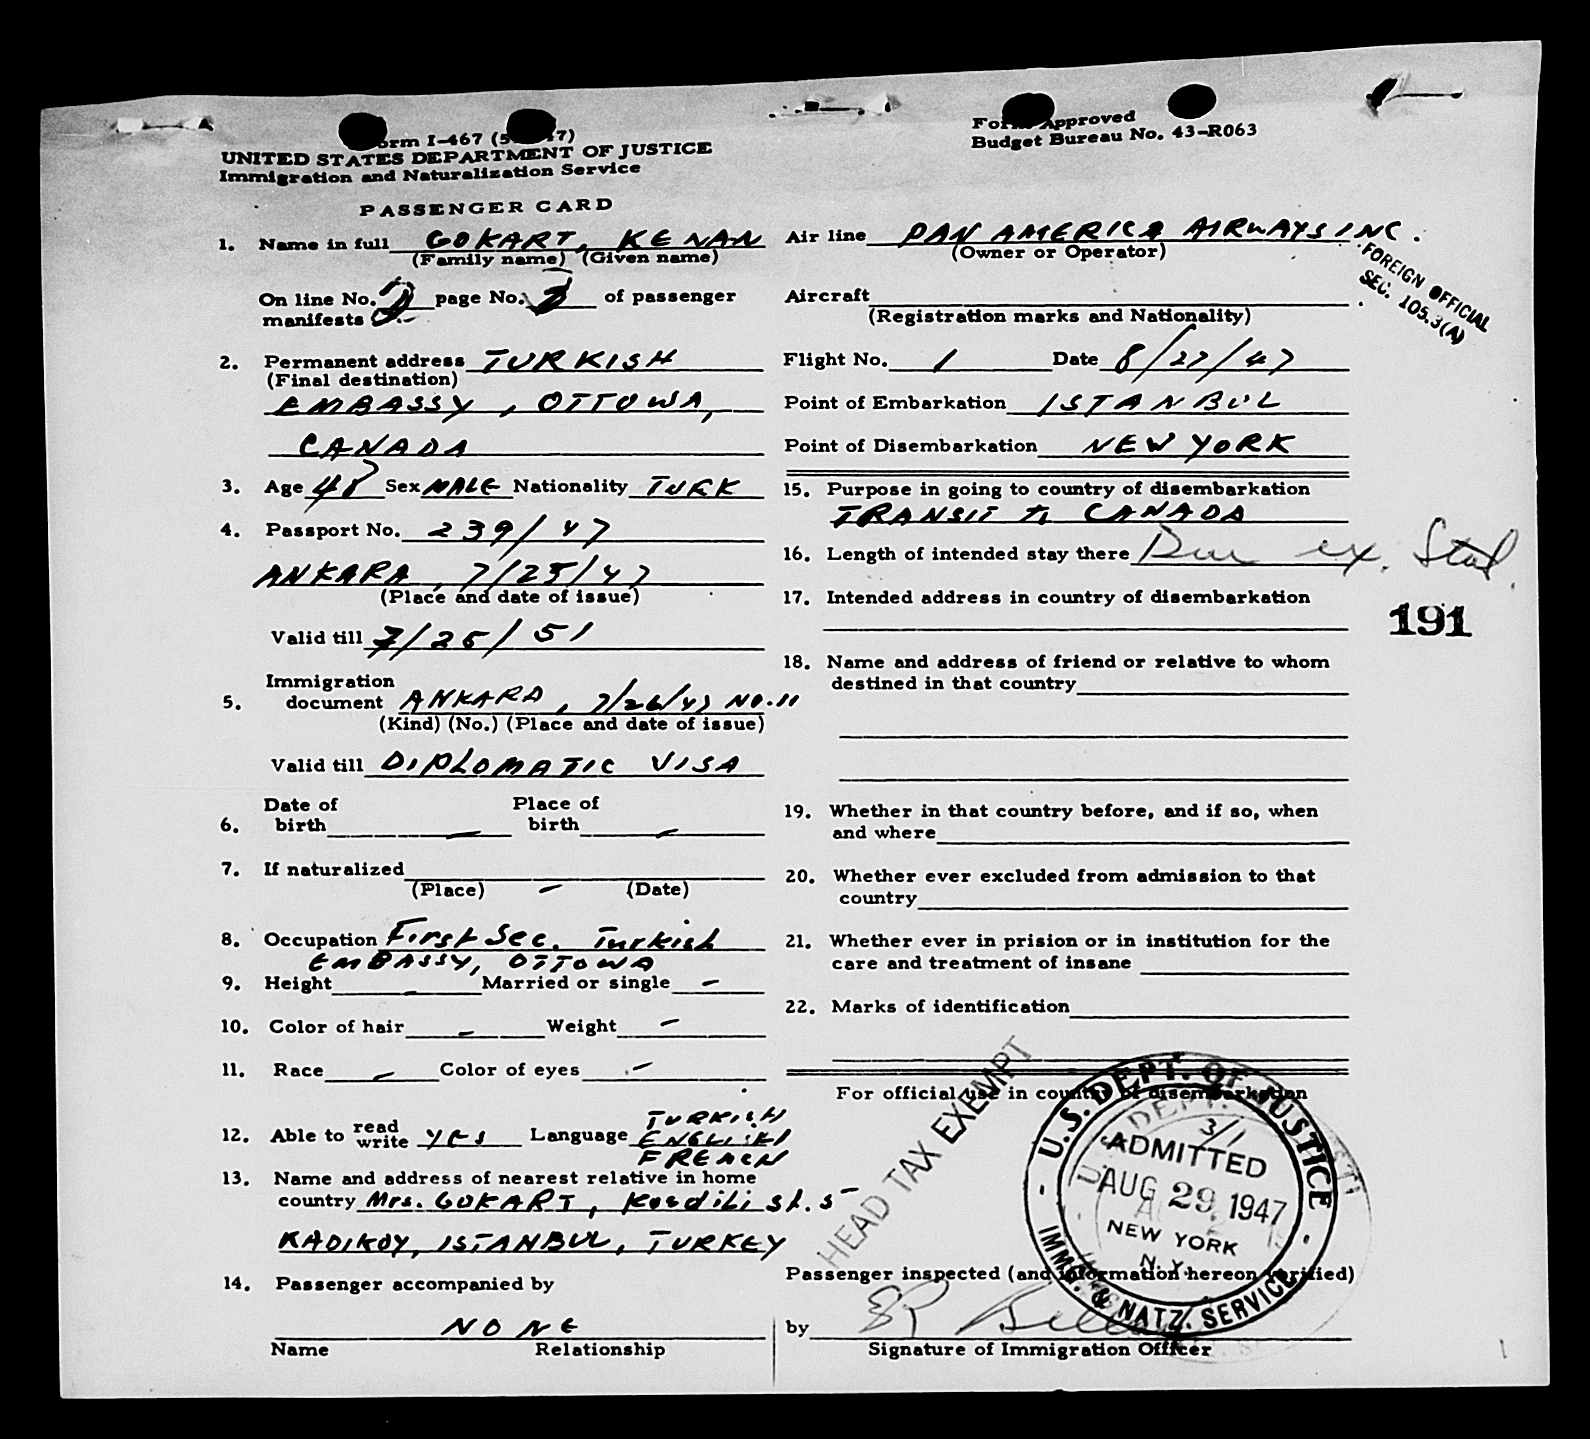 Form I-467
UNITED STATES DEPARTMENT OF JUSTICE
Immigration and Naturalization Service
Form Approved
Budget Bureau No. 43-R063
PASSENGER CARD
1. Name in full GOKART, KENAN
(Family name) (Given name)
On line No. page No. of passenger
manifests
2. Permanent address TURKISH
(Final destination)
EMBASSY, OTTOWA,
CANADA
3. Age 48 Sex MALE Nationality TURK
4. Passport No. 239/47
ANKARA, 7/25/47
(Place and date of issue)
Valid till 7/25/51
Immigration
5. document ANKARA, 7/26/47 NO. 11
(Kind) (No.) (Place and date of issue)
Valid till DIPLOMATIC VISA
Date of Place of
6. birth - birth -
7. If naturalized
(Place) - (Date)
8. Occupation First Sec. Turkish
EMBASSY, OTTOWA
9. Height - Married or single -
10. Color of hair - Weight -
11. Race - Color of eyes -
TURKISH
12. Able to read write yes Language ENGLISH
FRENCH
13. Name and address of nearest relative in home
country Mrs. GOKART, Kusdili st. 5
KADIKOY, ISTANBUL, TURKEY
14. Passenger accompanied by
NONE
Name Relationship
Air line PAN AMERICA AIRWAYS INC.
(Owner or Operator)
FOREIGN OFFICIAL
SEC. 105.3(A)
Aircraft
(Registration marks and Nationality)
Flight No. 1 Date 8/27/47
Point of Embarkation ISTANBUL
Point of Disembarkation NEW YORK
15. Purpose in going to country of disembarkation
TRANSIT to CANADA
16. Length of intended stay there Dur ex. Stat.
17. Intended address in country of disembarkation
191
18. Name and address of friend or relative to whom
destined in that country
19. Whether in that country before, and if so, when
and where
20. Whether ever excluded from admission to that
country
21. Whether ever in prision or in institution for the
care and treatment of insane
22. Marks of identification
For official use in country of disembarkation
HEAD TAX EXEMPT
U.S. DEPT. OF JUSTICE
3/1
ADMITTED
AUG 29 1947
NEW YORK
N.Y.
IMM. & NATZ. SERVICE
Passenger inspected (and information hereon verified)
by
Signature of Immigration Officer